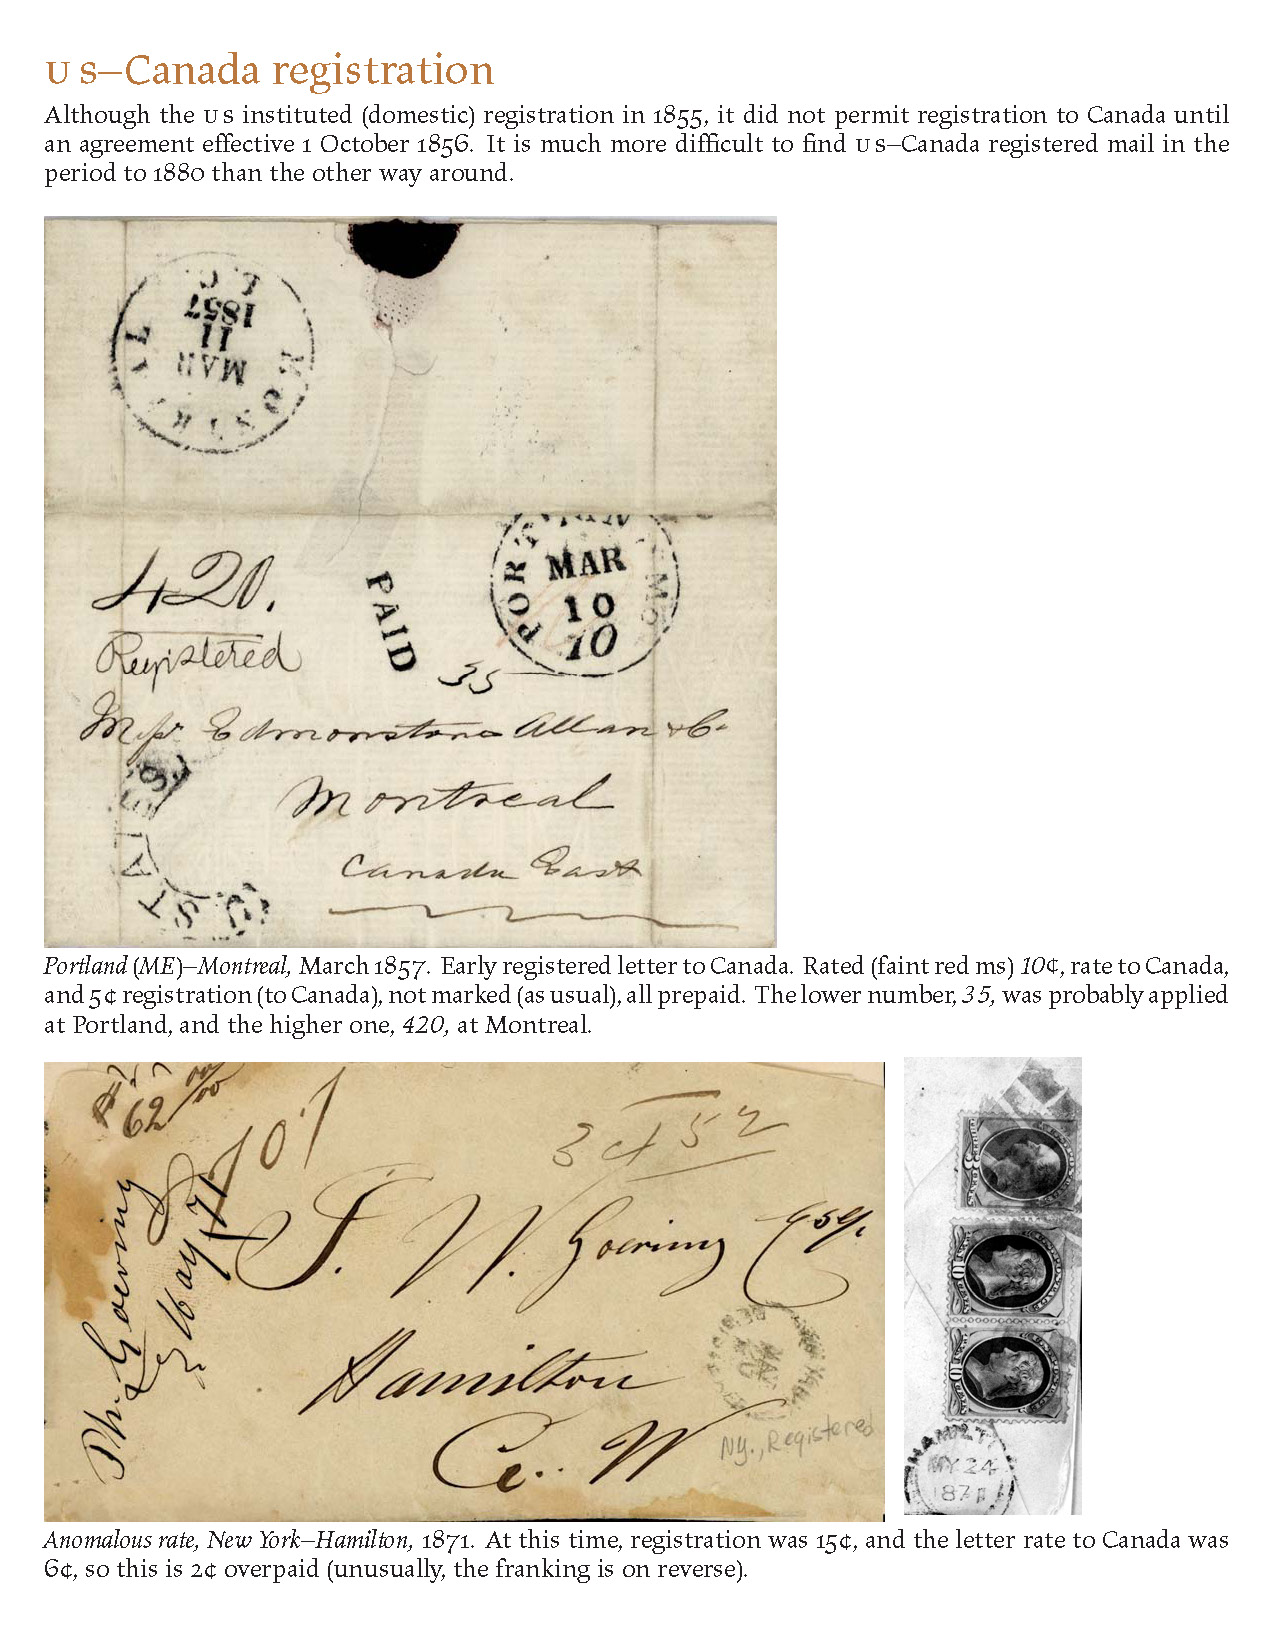 US–Canada registration
Although the US instituted (domestic) registration in 1855, it did not permit registration to Canada until
an agreement effective 1 October 1856. It is much more difficult to find US–Canada registered mail in the
period to 1880 than the other way around.
L.C.
1857
11
MAR
MONTREAL
420.
Registered
PAID
PORTLAND Me
MAR
10
10
35
Messrs Edmonstone Allan & Co
Montreal
Canada East
STATES
Portland (ME)–Montreal, March 1857. Early registered letter to Canada. Rated (faint red ms) 10¢, rate to Canada,
and 5¢ registration (to Canada), not marked (as usual), all prepaid. The lower number, 35, was probably applied
at Portland, and the higher one, 420, at Montreal.
62
Ph. Goering
May 71
J. W. Goering Esq.
Hamilton
C. W
NY., Registered
HAMILTON
MY 24
1871
Anomalous rate, New York–Hamilton, 1871. At this time, registration was 15¢, and the letter rate to Canada was
6¢, so this is 2¢ overpaid (unusually, the franking is on reverse).